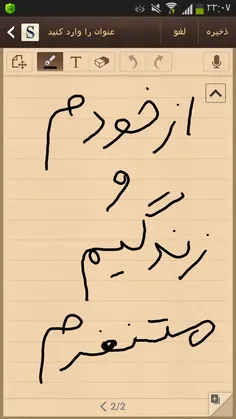 ۲۲:۰۷
ذخیره لغو عنوان را وارد کنید S
T
از خودم
و
زندگیم
متنفرم
2/2